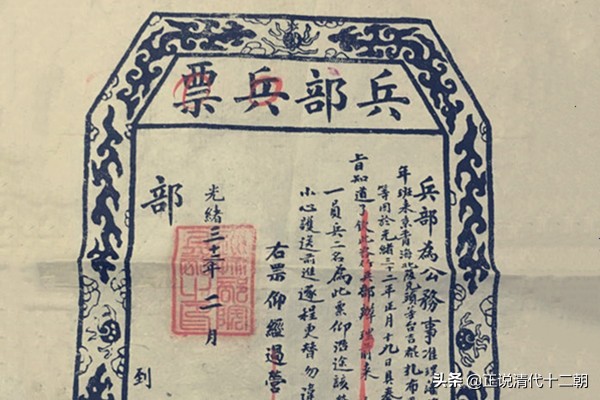 兵部兵票
兵部為公務事准理藩
年班來京青海北
等因於光緒三十二年正月十九日具奏
旨知道了欽此
一員兵二名為此票仰沿途該
小心護送前進逐程更替勿違
右票仰經過營
光緒三十二年二月
部
到
头条 @正说清代十二朝